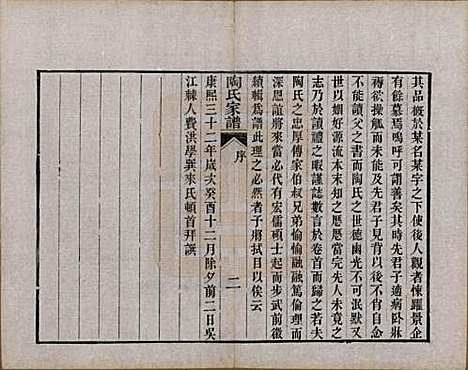 其品概於某名某字之下使後人觀者悚躍景企
有餘慕焉嗚呼可謂善矣其時先君子適病臥牀
褥欲操觚而未能及先君子即世余小子
不能讀父之書而陶氏之世德幽光不可泯默又
世以姻好源流本末知之歷歷當完先人未竟之
志乃於讀禮之暇謹誌數言於卷首而歸之若夫
陶氏之忠厚傳家伯叔兄弟愉愉融融篤倫理而
深思誼將來當必代有宏儒碩士起而步武前徽
續輯爲譜此理之必然者予將拭目以俟云
康熙三十二年歲次癸酉十二月除夕前二日吳
江棘人費洪學巽來氏頓首拜譔
陶氏家譜
序
二